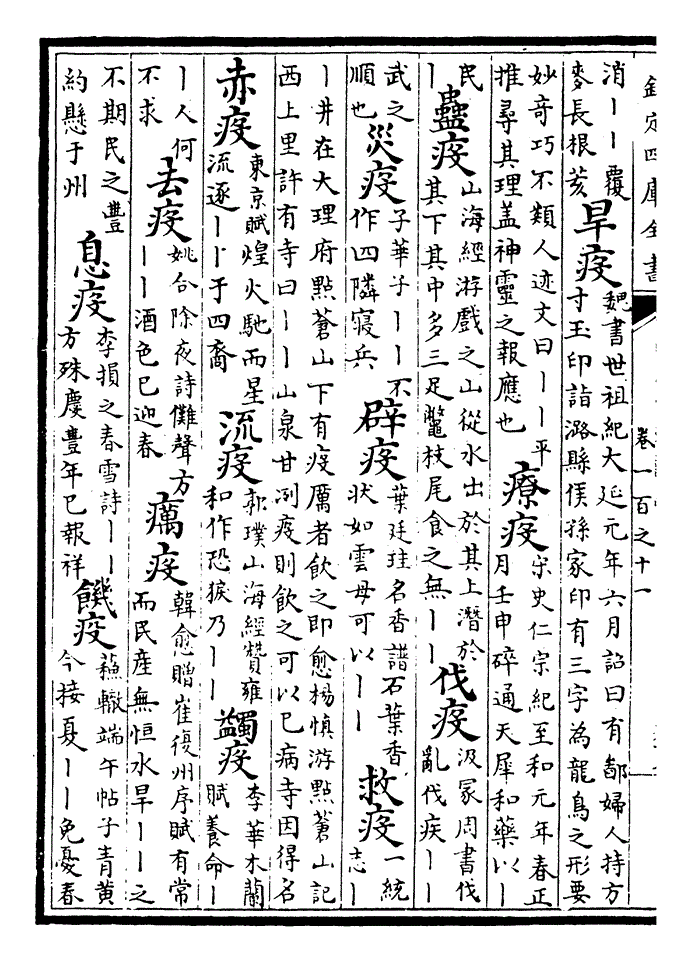 欽定四庫全書
卷一百之十一
消丨丨覆
麥長根荄
旱疫
魏書世祖紀大延元年六月詔曰有鄱婦人持方
寸玉印詣潞縣侯孫家印有三字為龍鳥之形要
妙竒巧不類人迹文曰丨丨平
推尋其理蓋神靈之報應也
療疫
宋史仁宗紀至和元年春正
月壬申碎通天犀和藥以丨
民
丨
蠱疫
山海經游戲之山從水出於其上潛於
其下其中多三足鼈枝尾食之無丨丨
伐疫
汲冡周書伐
亂伐疾丨丨
武之
順也
災疫
子華子丨丨不
作四隣寢兵
辟疫
葉廷珪名香譜石葉香
狀如雲母可以丨丨
救疫
一統
志丨
丨井在大理府點蒼山下有疫厲者飲之即愈楊慎游點蒼山記
西上里許有寺曰丨丨山泉甘冽疫則飲之可以已病寺因得名
赤疫
東京賦煌火馳而星
流逐丨丨于四裔
流疫
郭璞山海經贊雍
和作恐猴乃丨丨
蠲疫
李華木蘭
賦養命丨
丨人何
不求
去疫
姚合除夜詩儺聲方
丨丨酒色已迎春
癘疫
韓愈贈崔復州序賦有常
而民產無恒水旱丨丨之
不期民之豐
約懸于州
息疫
李損之春雪詩丨丨
方殊慶豐年已報祥
饑疫
蘇轍端午帖子青黃
今接夏丨丨免憂春